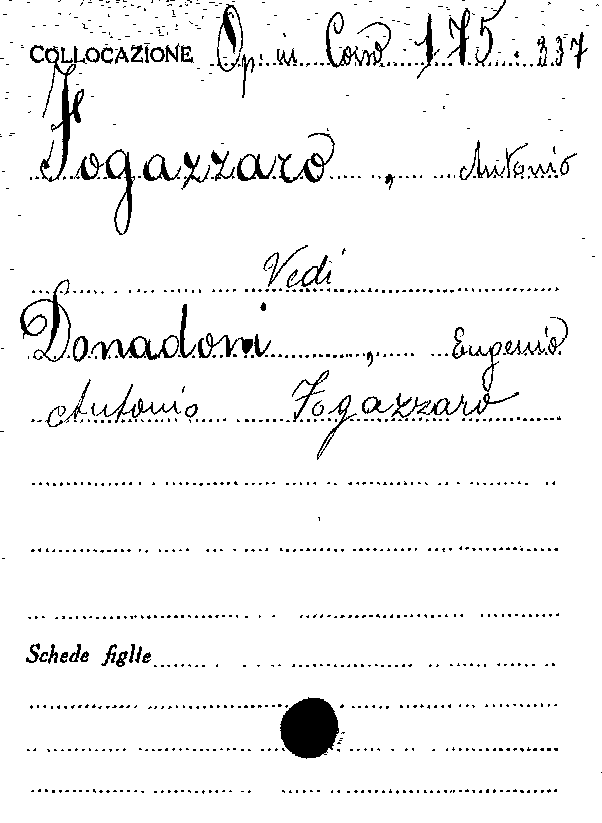 COLLOCAZIONE Op. in Cors 175. 337
Fogazzaro, Antonio
Vedi
Donadoni, Eugenio
Antonio Fogazzaro
Schede figlie